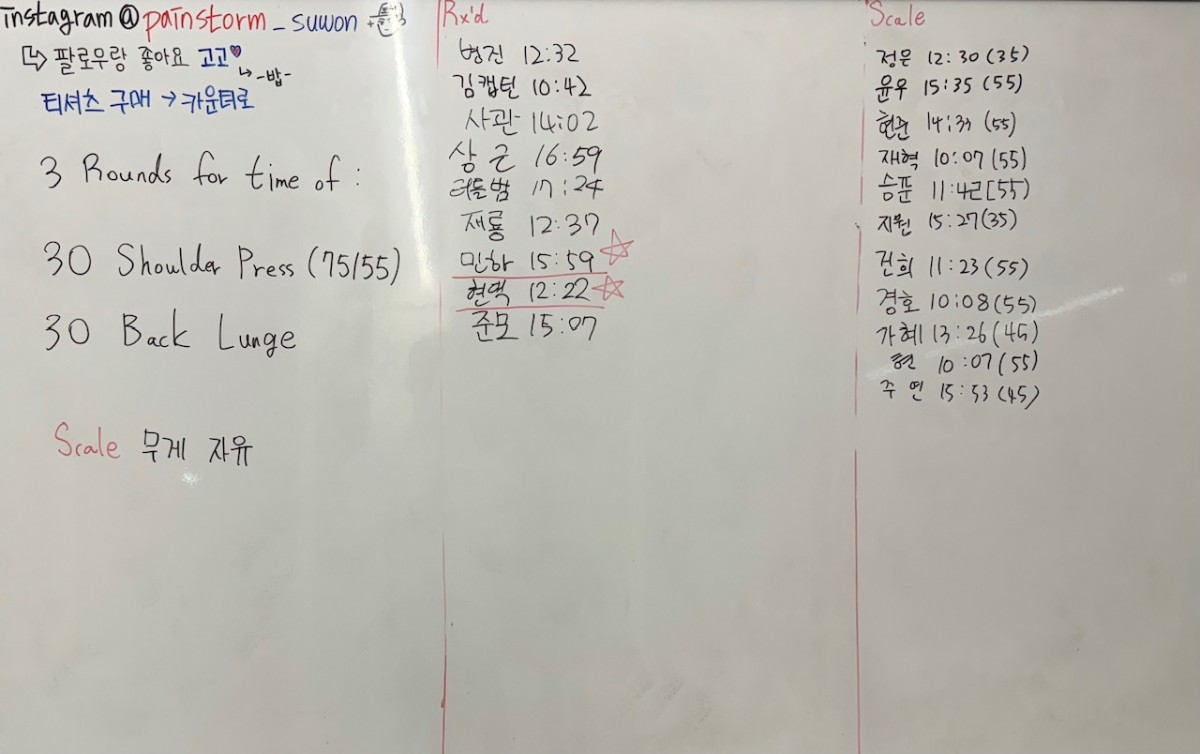 instagram@painstorm_suwon
팔로우랑 좋아요 고고♥
↳ -밥-
티셔츠 구매 → 카운터로
3 Rounds for time of :
30 Shoulder Press (75/55)
30 Back Lunge
Scale 무게 자유
Rx'd
병진 12:32
김캡틴 10:42
사관 14:02
상근 16:59
터틀범 17:24
재룡 12:37
민하 15:59 ☆
현액 12:22 ☆
준모 15:07
Scale
정은 12:30 (35)
윤우 15:35 (55)
현준 14:33 (55)
재혁 10:07 (55)
승푼 11:42 [55)
지원 15:27 (35)
건희 11:23 (55)
경호 10:08 (55)
가혜 13:26 (45)
현 10:07 (55)
주연 15:53 (45)